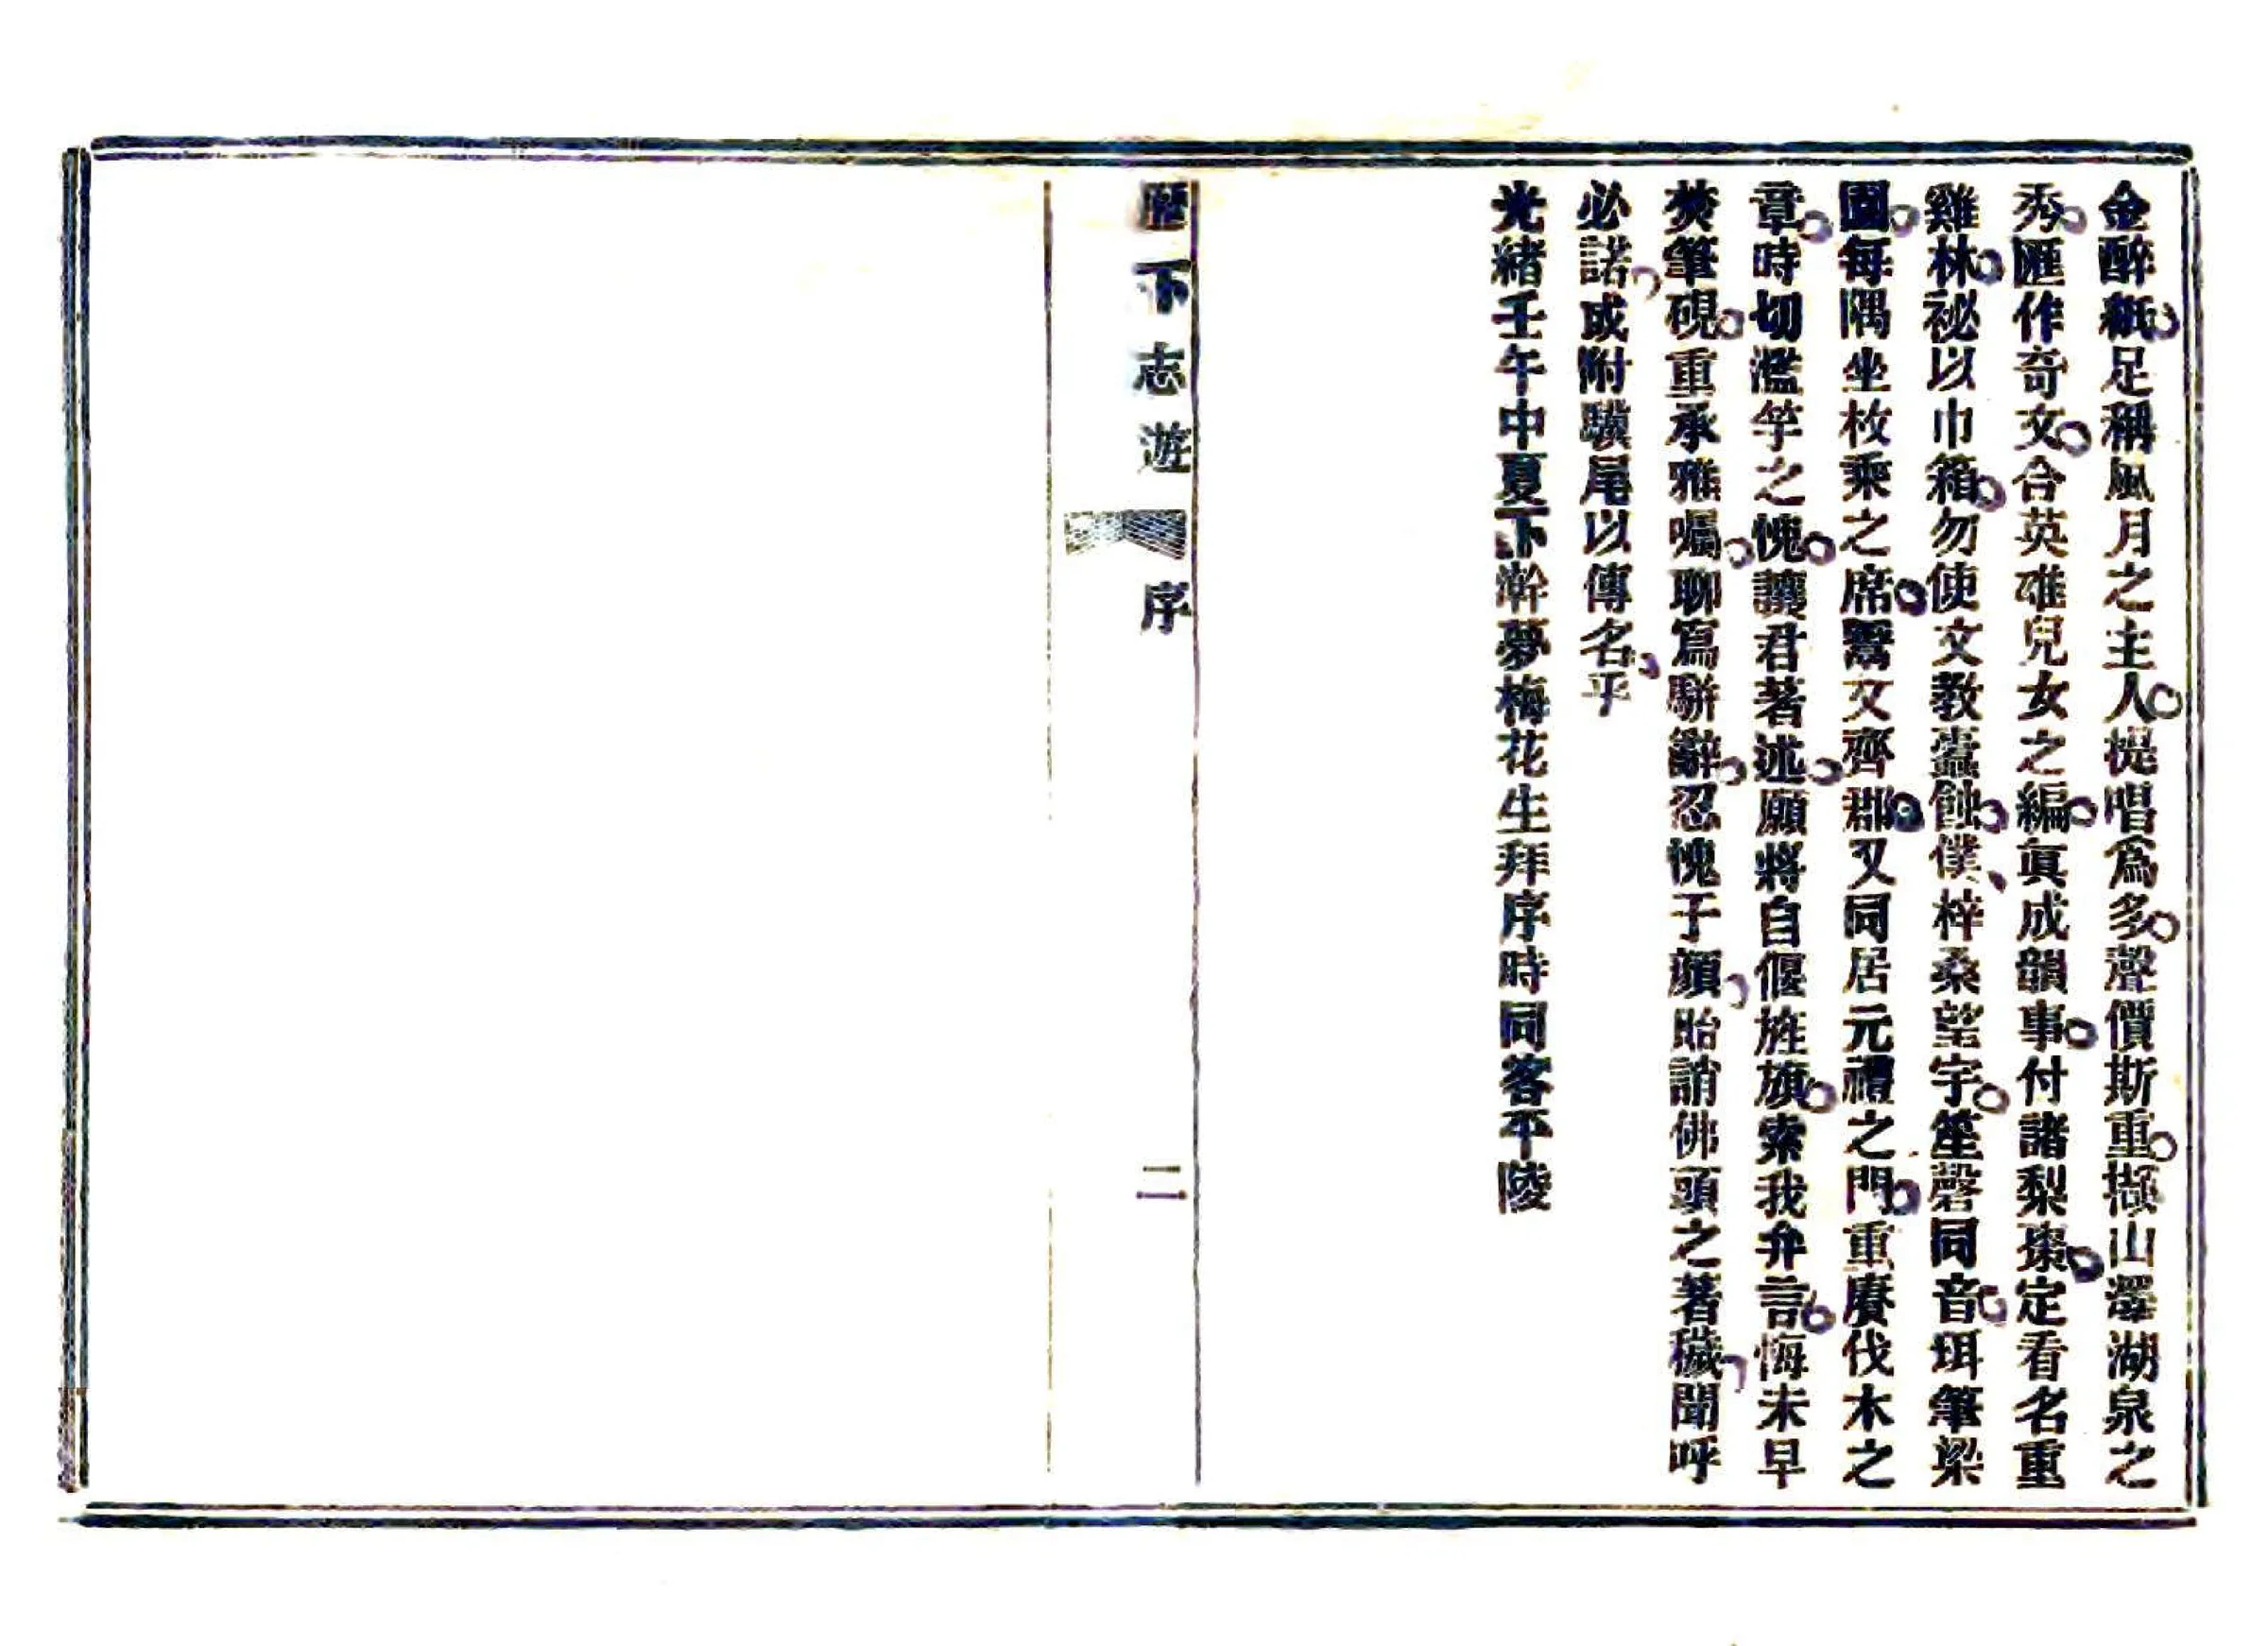 金醉紙足稱風月之主人提唱爲多聲價斯重擷山澤湖泉之
秀匯作奇文合英雄兒女之編眞成韻事付諸梨棗定看名重
雞林祕以巾箱勿使文教蠹蝕僕梓桑望宇笙磬同音珥筆梁
園每隅坐枚乘之席鬻文齊郡又同居元禮之門重賡伐木之
章時切濫竽之愧讓君著述願將自偃旌旗索我弁言悔未早
焚筆硯重承雅囑聊寫駢辭忍愧于顔貽誚佛頭之著穢聞呼
必諾或附驥尾以傳名乎
光緒壬午中夏下澣夢梅花生拜序時同客平陵
歷下志遊 序 二